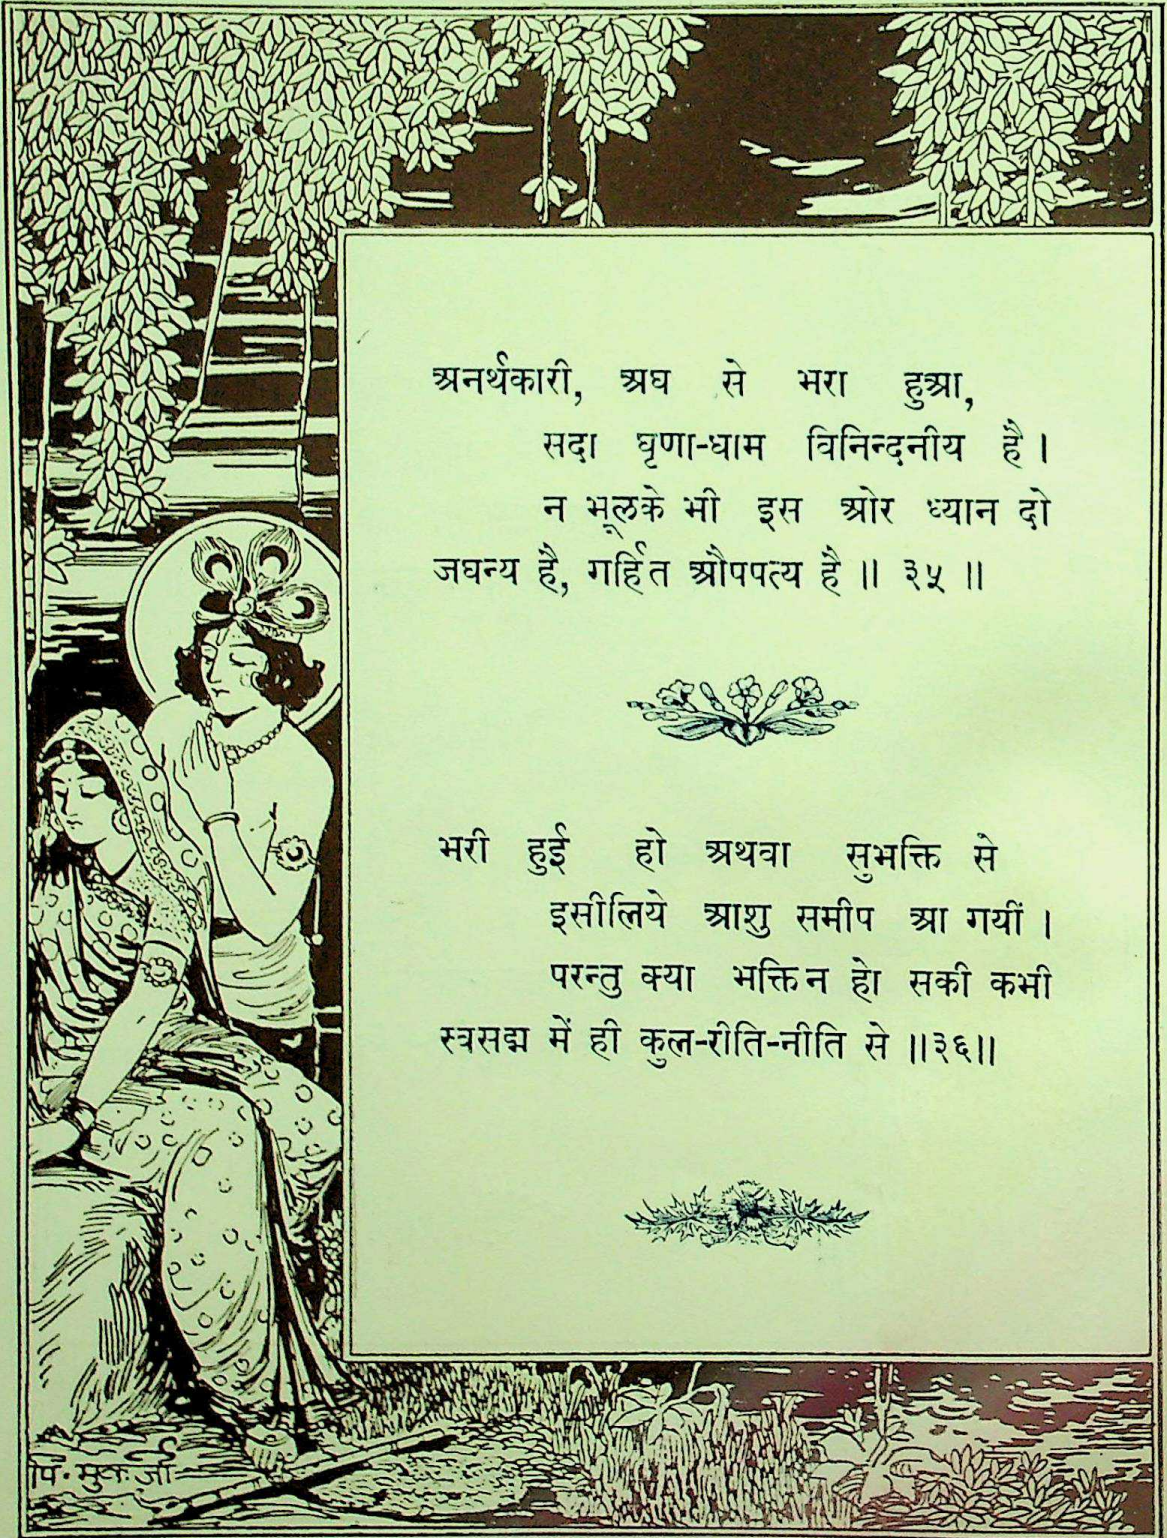 अनर्थकारी, अघ से भरा हुआ,
सदा घृणा-धाम विनिन्दनीय है ।
न भूलके भी इस ओर ध्यान दो
जघन्य है, गर्हित औपपत्य है ॥ ३५ ॥
भरी हुई हो अथवा सुभक्ति से
इसीलिये आशु समीप आ गयीं ।
परन्तु क्या भक्ति न हो सकी कभी
स्वसद्म में ही कुल-रीति-नीति से ॥३६॥
पि. मुकर्जी